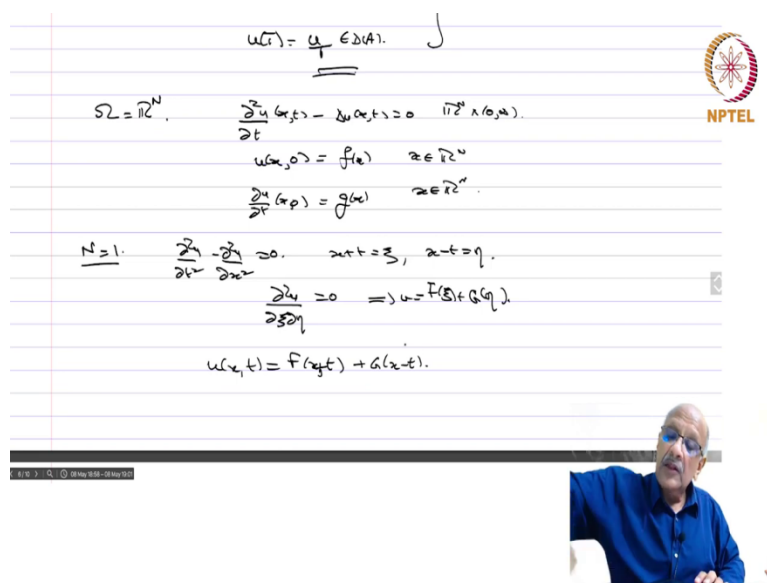 u(T) = u_T ∈ D(A).
NPTEL
Ω = ℝ^N. ∂²u/∂t (x,t) − Δu(x,t) = 0 ℝ^N × (0,∞).
u(x,0) = f(x) x ∈ ℝ^N
∂u/∂t (x,0) = g(x) x ∈ ℝ^N.
N=1. ∂²u/∂t² − ∂²u/∂x² = 0. x+t = ξ, x−t = η.
∂²u/∂ξ∂η = 0 ⟹ u = F(ξ) + G(η).
u(x,t) = F(x+t) + G(x−t).
6/10 08 May 18:56 – 08 May 19:01